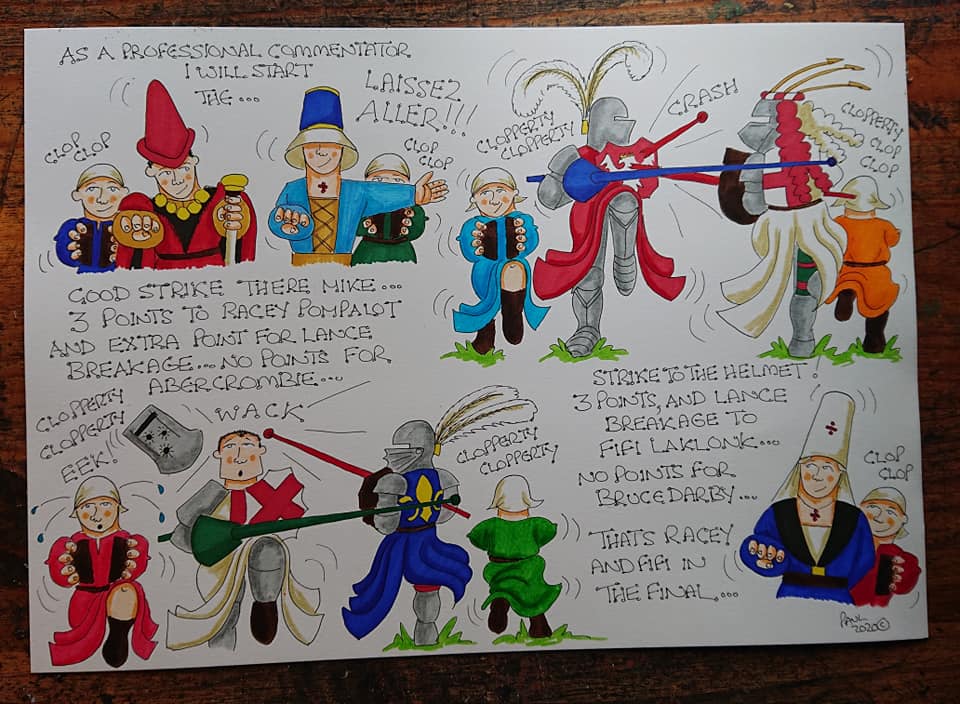 AS A PROFESSIONAL COMMENTATOR
I WILL START
THE...
LAISSEZ
ALLER!!!
CLOP
CLOP
CLOP
CLOP
CLOPPERTY
CLOPPERTY
CLOPPER
CRASH
CLOPPERTY
CLOP
CLOP
CLOP
GOOD STRIKE THERE MIKE...
3 POINTS TO RACEY POMPALOT
AND EXTRA POINT FOR LANCE
BREAKAGE... NO POINTS FOR
ABERCROMBIE...
CLOPPERTY
CLOPPERTY
EEK!
WACK
CLOPPERTY
CLOPPERTY
STRIKE TO THE HELMET!
3 POINTS, AND LANCE
BREAKAGE TO
FIFI LAKLONK...
NO POINTS FOR
BRUCE DARBY...
THATS RACEY
AND FIFI IN
THE FINAL...
CLOP
CLOP
PAUL
2020©